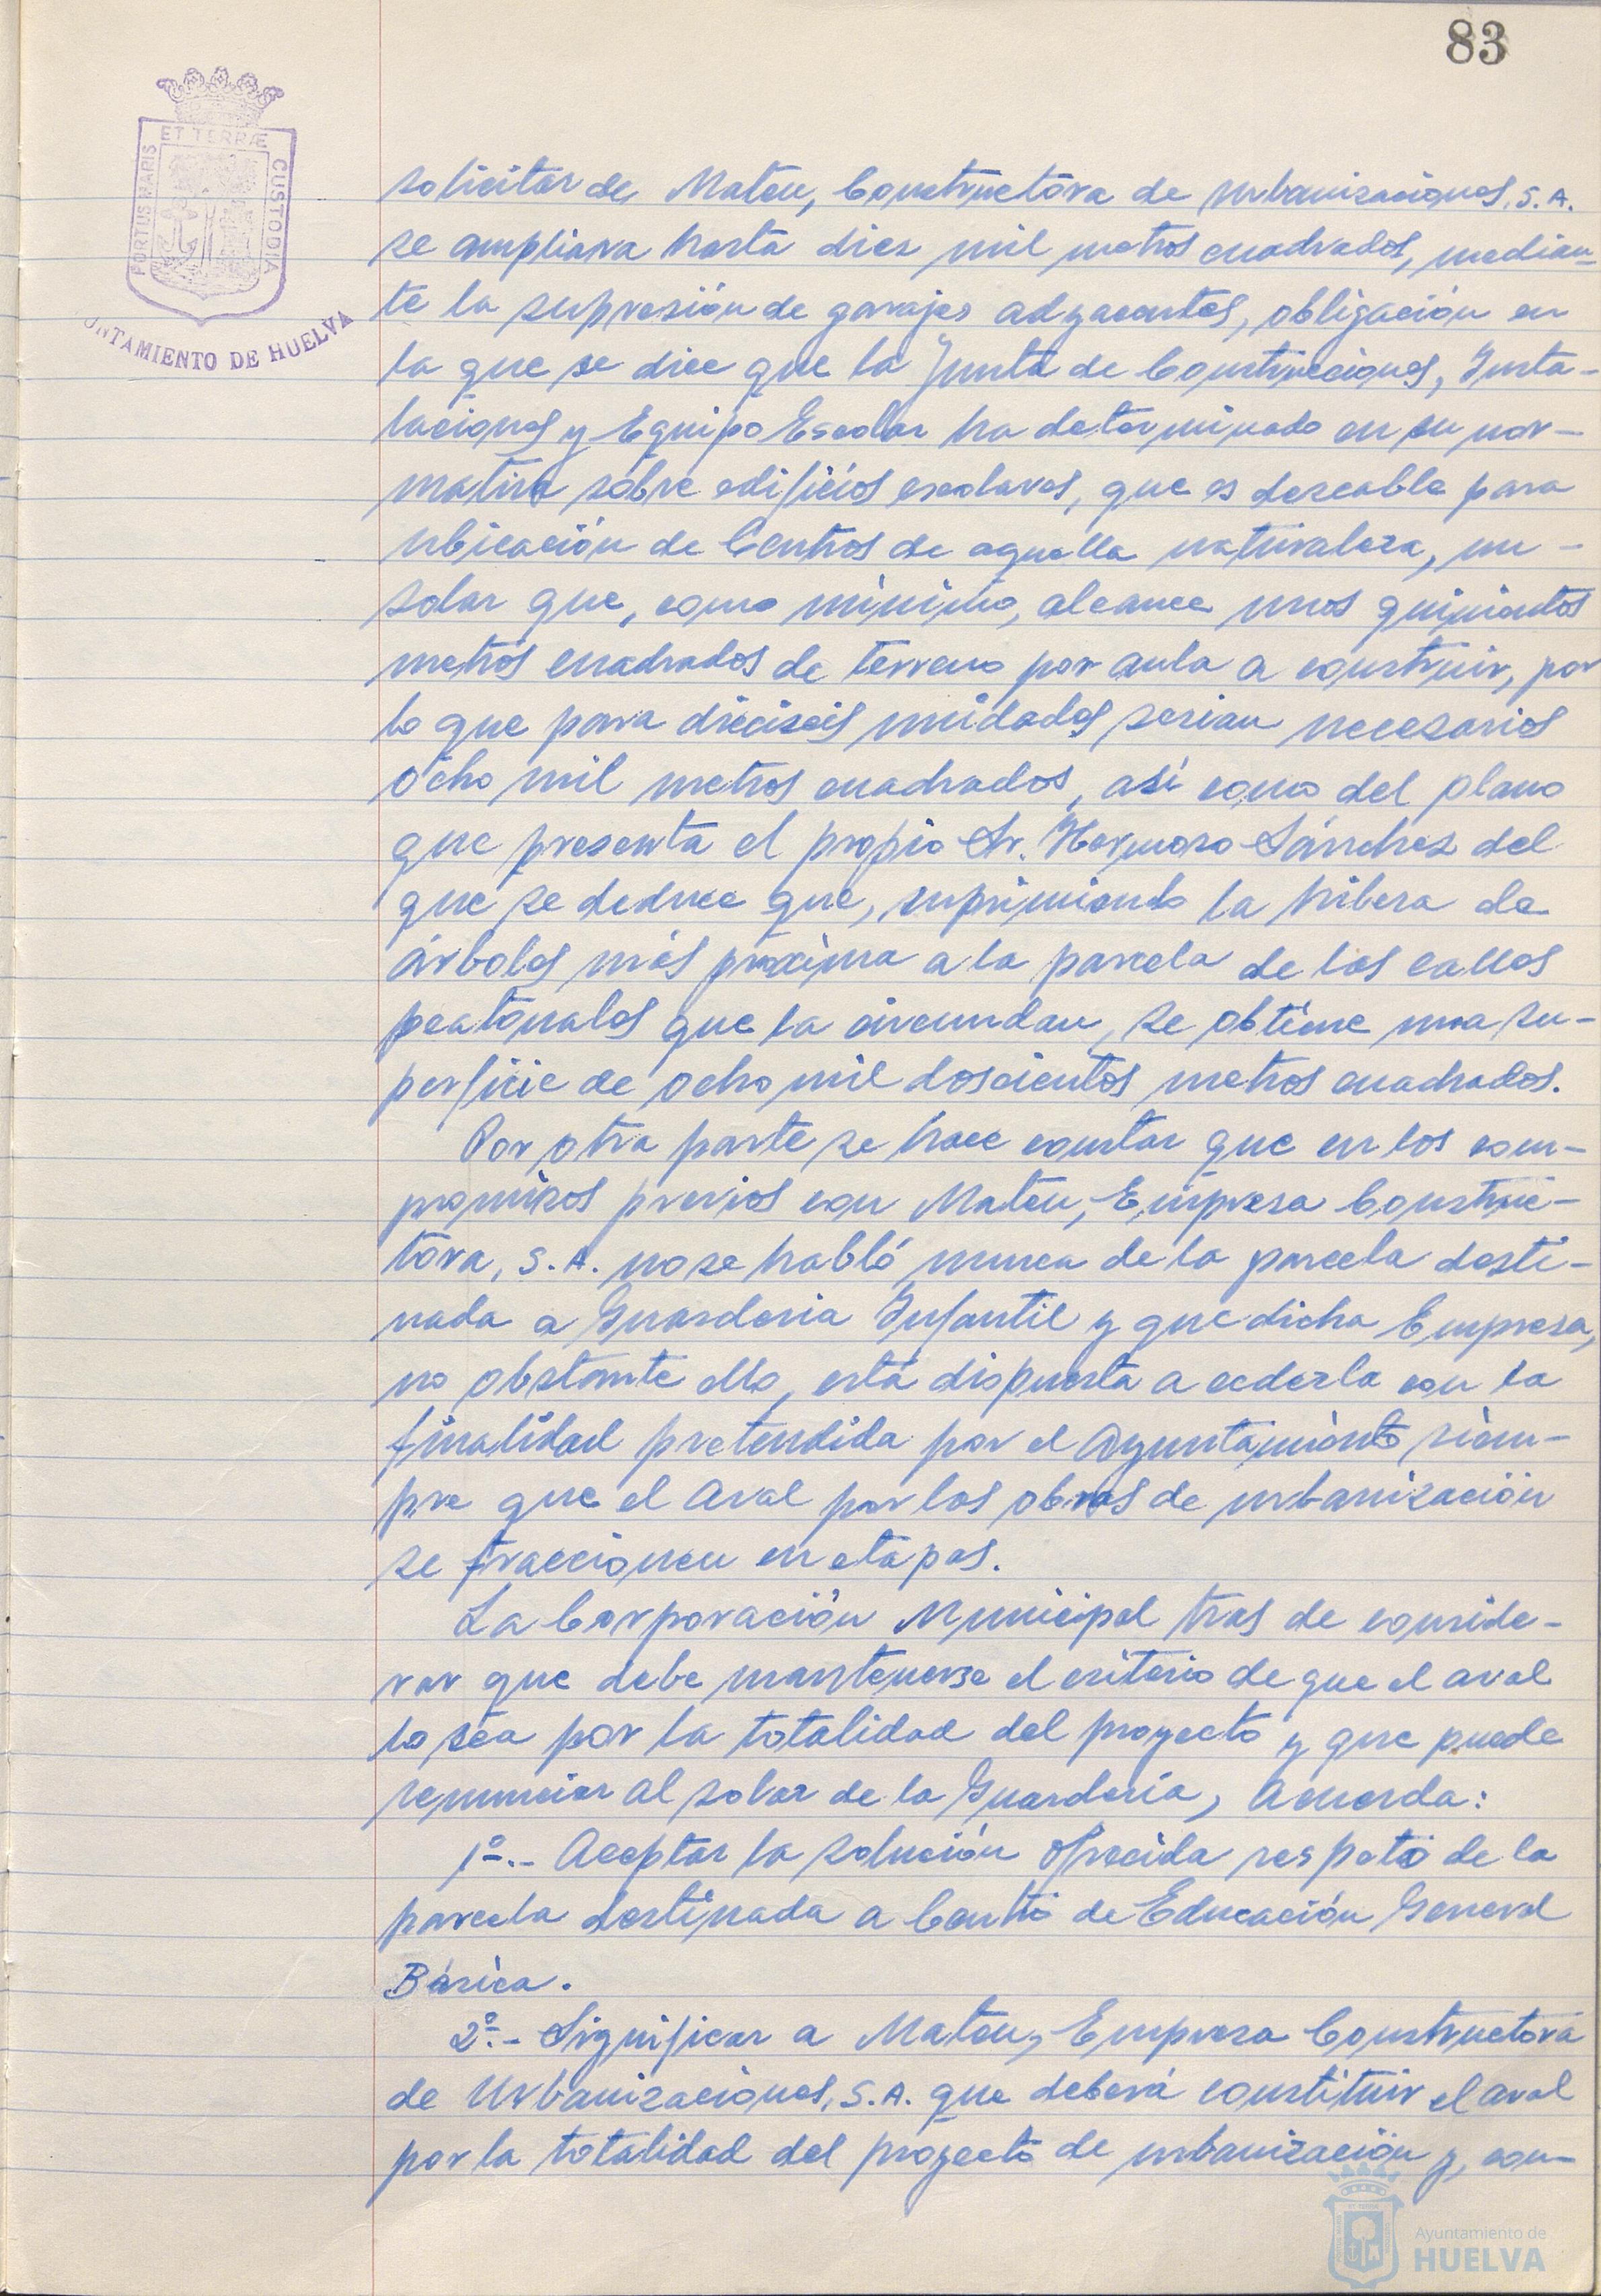 83
PORTUS MARIS
ET TERRÆ
CUSTODIA
UNTAMIENTO DE HUELVA
solicitar de Mateu, Constructora de Urbanizaciones, S.A.
se ampliara hasta diez mil metros cuadrados, median-
te la supresión de garajes adyacentes, obligación en
la que se dice que la Junta de Construcciones, Insta-
laciones y Equipo Escolar ha determinado en su nor-
mativa sobre edificios escolares, que es deseable para
ubicación de Centros de aquella naturaleza, un -
solar que, como mínimo, alcance unos quinientos
metros cuadrados de terreno por aula a construir, por
lo que para dieciseis unidades serian necesarios
ocho mil metros cuadrados, así como del plano
que presenta el propio Sr. Hermoso Sánchez del
que se deduce que, suprimiendo la hilera de
árboles más próxima a la parcela de las calles
peatonales que la circundan, se obtiene una su-
perficie de ocho mil doscientos metros cuadrados.
Por otra parte se hace constar que en los com-
promisos previos con Mateu, Empresa Construc-
tora, S.A. no se habló nunca de la parcela desti-
nada a Guarderia Infantil y que dicha Empresa,
no obstante ello, está dispuesta a cederla con la
finalidad pretendida por el Ayuntamiento siem-
pre que el aval por las obras de urbanización
se fraccionen en etapas.
La Corporación Municipal tras de conside-
rar que debe mantenerse el criterio de que el aval
lo sea por la totalidad del proyecto y que puede
renunciar al solar de la Guardería, Acuerda:
1º.- Aceptar la solución ofrecida respeto de la
parcela destinada a Centro de Educación General
Básica.
2º.- Significar a Mateu, Empresa Constructora
de Urbanizaciones, S.A. que deberá constituir el aval
por la totalidad del proyecto de urbanización y, con-
Ayuntamiento de
HUELVA